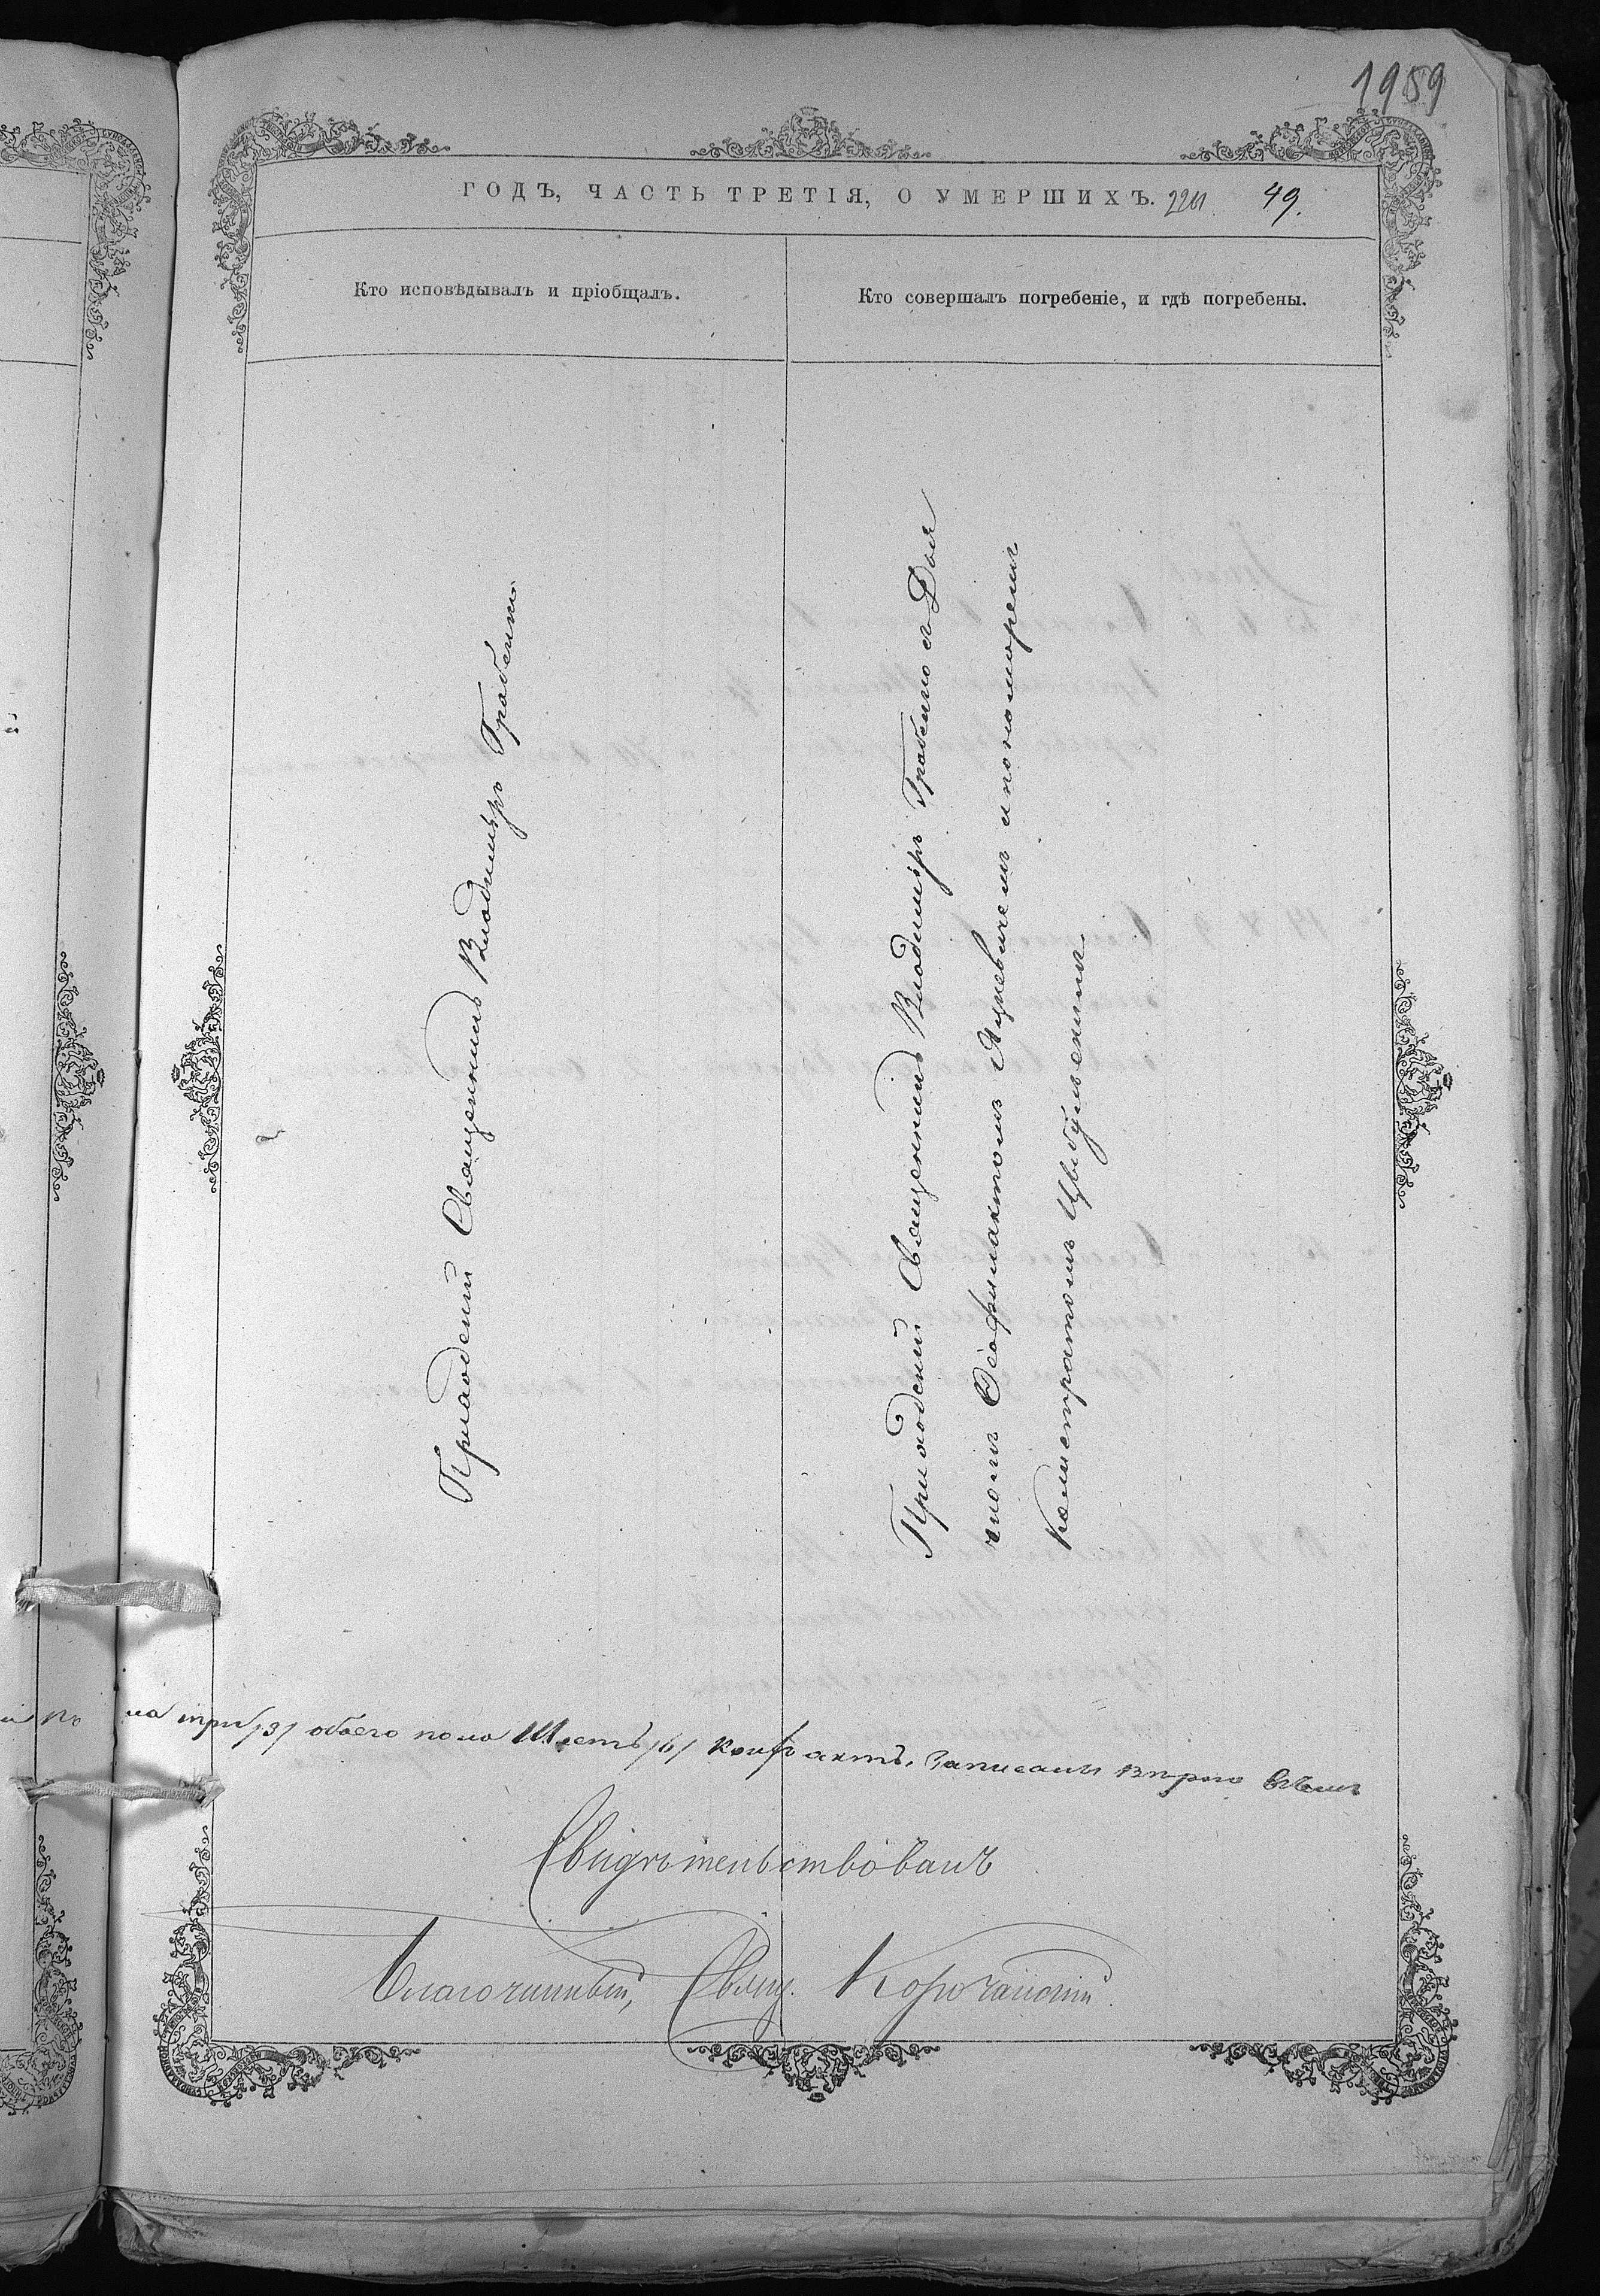 1989
ГОДЪ, ЧАСТЬ ТРЕТІЯ, О УМЕРШИХЪ. 49.
Кто исповѣдывалъ и пріобщалъ.
Кто совершалъ погребеніе, и гдѣ погребены.
Приходскій Священникъ Владиміръ Грабенко
Приходскій Священникъ Владиміръ Грабенко съ Дья
чкомъ Ѳеофилактомъ Яцкевичемъ и пономаремъ
Калистратомъ Цыбулевичемъ
на три /3/ обоего пола Шесть /6/
Записаны вѣрно
Свидѣтельствовалъ
Благочинный, Свящ. Корчаковскій